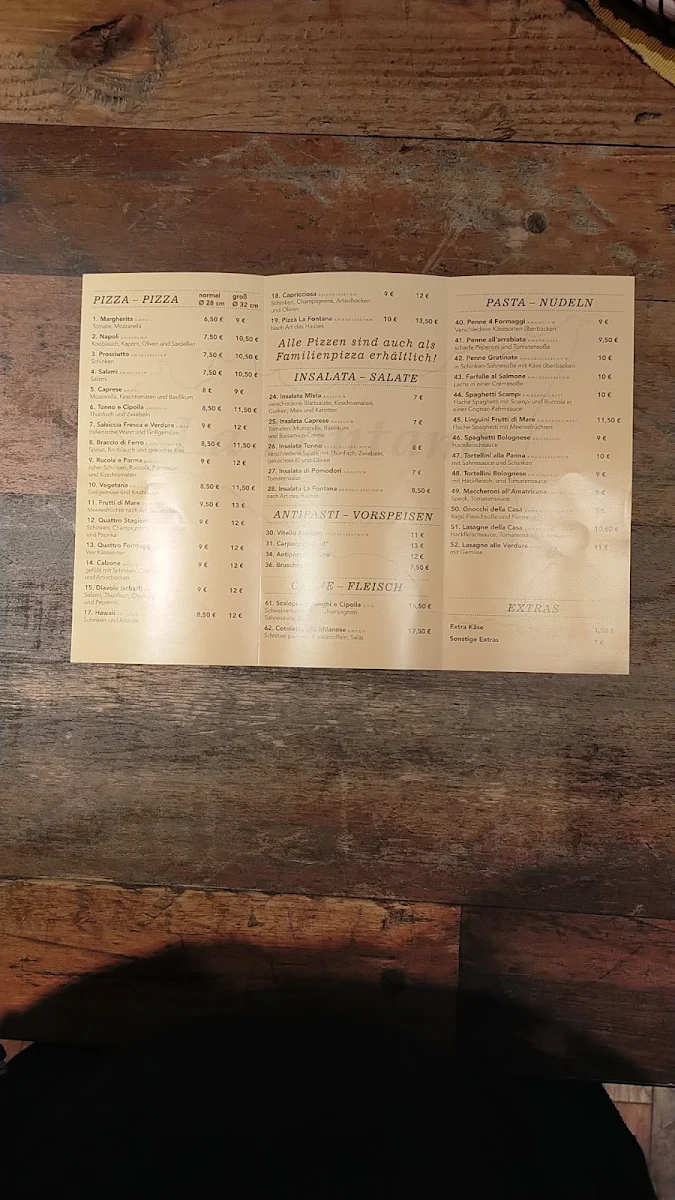 PIZZA – PIZZA
normal Ø 28 cm
groß Ø 32 cm
1. Margherita 6,50 € 9 €
Tomate, Mozzarella
2. Napoli 7,50 € 10,50 €
Knoblauch, Kapern, Oliven und Sardellen
3. Prosciutto 7,50 € 10,50 €
Schinken
4. Salami 7,50 € 10,50 €
Salami
5. Caprese 8 € 9 €
Mozzarella, Kirschtomaten und Basilikum
6. Tonno e Cipolla 8,50 € 11,50 €
Thunfisch und Zwiebeln
7. Salsiccia Fresca e Verdura 9 € 12 €
Italienische Wurst und Grillgemüse
8. Braccio di Ferro 8,50 € 11,50 €
Spinat, Knoblauch und gekochte Eier
9. Rucola e Parma 9 € 12 €
roher Schinken, Ruccola, Parmesan
und Kirschtomaten
10. Vegetaria 8,50 € 11,50 €
Grillgemüse und Knoblauch
11. Frutti di Mare 9,50 € 13 €
Meeresfrüchte nach Art
12. Quattro Stagioni 9 € 12 €
Schinken, Champignons
und Paprika
13. Quattro Formaggi 9 € 12 €
Vier Käsesorten
14. Calzone 9 € 12 €
gefüllt mit Schinken,
und Artischocken
15. Diavolo (scharf) 9 € 12 €
Salami, Thunfisch,
und Peperoni
17. Hawaii 8,50 € 12 €
Schinken und Ananas
18. Capricciosa 9 € 12 €
Schinken, Champignons, Artischocken
und Oliven
19. Pizza La Fontana 10 € 13,50 €
Nach Art des Hauses
Alle Pizzen sind auch als
Familienpizza erhältlich!
INSALATA – SALATE
24. Insalata Mista 7 €
verschiedene Blattsalate, Kirschtomaten,
Gurken, Mais und Karotten
25. Insalata Caprese 7 €
Tomaten, Mozzarella, Basilikum
und Balsamico-Creme
26. Insalata Tonno 8 €
verschiedene Salate mit Thunfisch, Zwiebeln,
gekochtes Ei und Oliven
27. Insalata di Pomodori 7 €
Tomatensalat
28. Insalata La Fontana 8,50 €
nach Art des Hauses
ANTIPASTI – VORSPEISEN
30. Vitello 11 €
31. Carpaccio 13 €
34. Antipasto 12 €
36. Bruschetta 7,50 €
CARNE – FLEISCH
61. Scaloppina Funghi e Cipolla 16,50 €
Champignon-
62. Cotoletta alla Milanese 17,50 €
Schnitzel Salat
PASTA – NUDELN
40. Penne 4 Formaggi 9 €
Verschiedene Käsesorten überbacken
41. Penne all'arrabiata 9,50 €
scharfe Peperoni und Tomatensoße
42. Penne Gratinate 10 €
in Schinken-Sahnesoße mit Käse überbacken
43. Farfalle al Salmone 10 €
Lachs in einer Cremesoße
44. Spaghetti Scampi 10 €
Flache Spaghetti mit Scampi und Ruccola in
einer Cognac-Rahmsauce
45. Linguini Frutti di Mare 11,50 €
Flache Spaghetti mit Meeresfrüchten
46. Spaghetti Bolognese 9 €
Hackfleischsauce
47. Tortellini alla Panna 10 €
mit Sahnesauce und Schinken
48. Tortellini Bolognese 9 €
mit Hackfleisch- und Tomatensauce
49. Maccheroni all'Amatriciana 9 €
Speck, Tomatensauce
50. Gnocchi della Casa
Ragu-Fleischsoße und Parmesan
51. Lasagne della Casa 10,60 €
Hackfleischsauce, Tomatensauce
52. Lasagne alle Verdure 11 €
mit Gemüse
EXTRAS
Extra Käse 1,50 €
Sonstige Extras 1 €